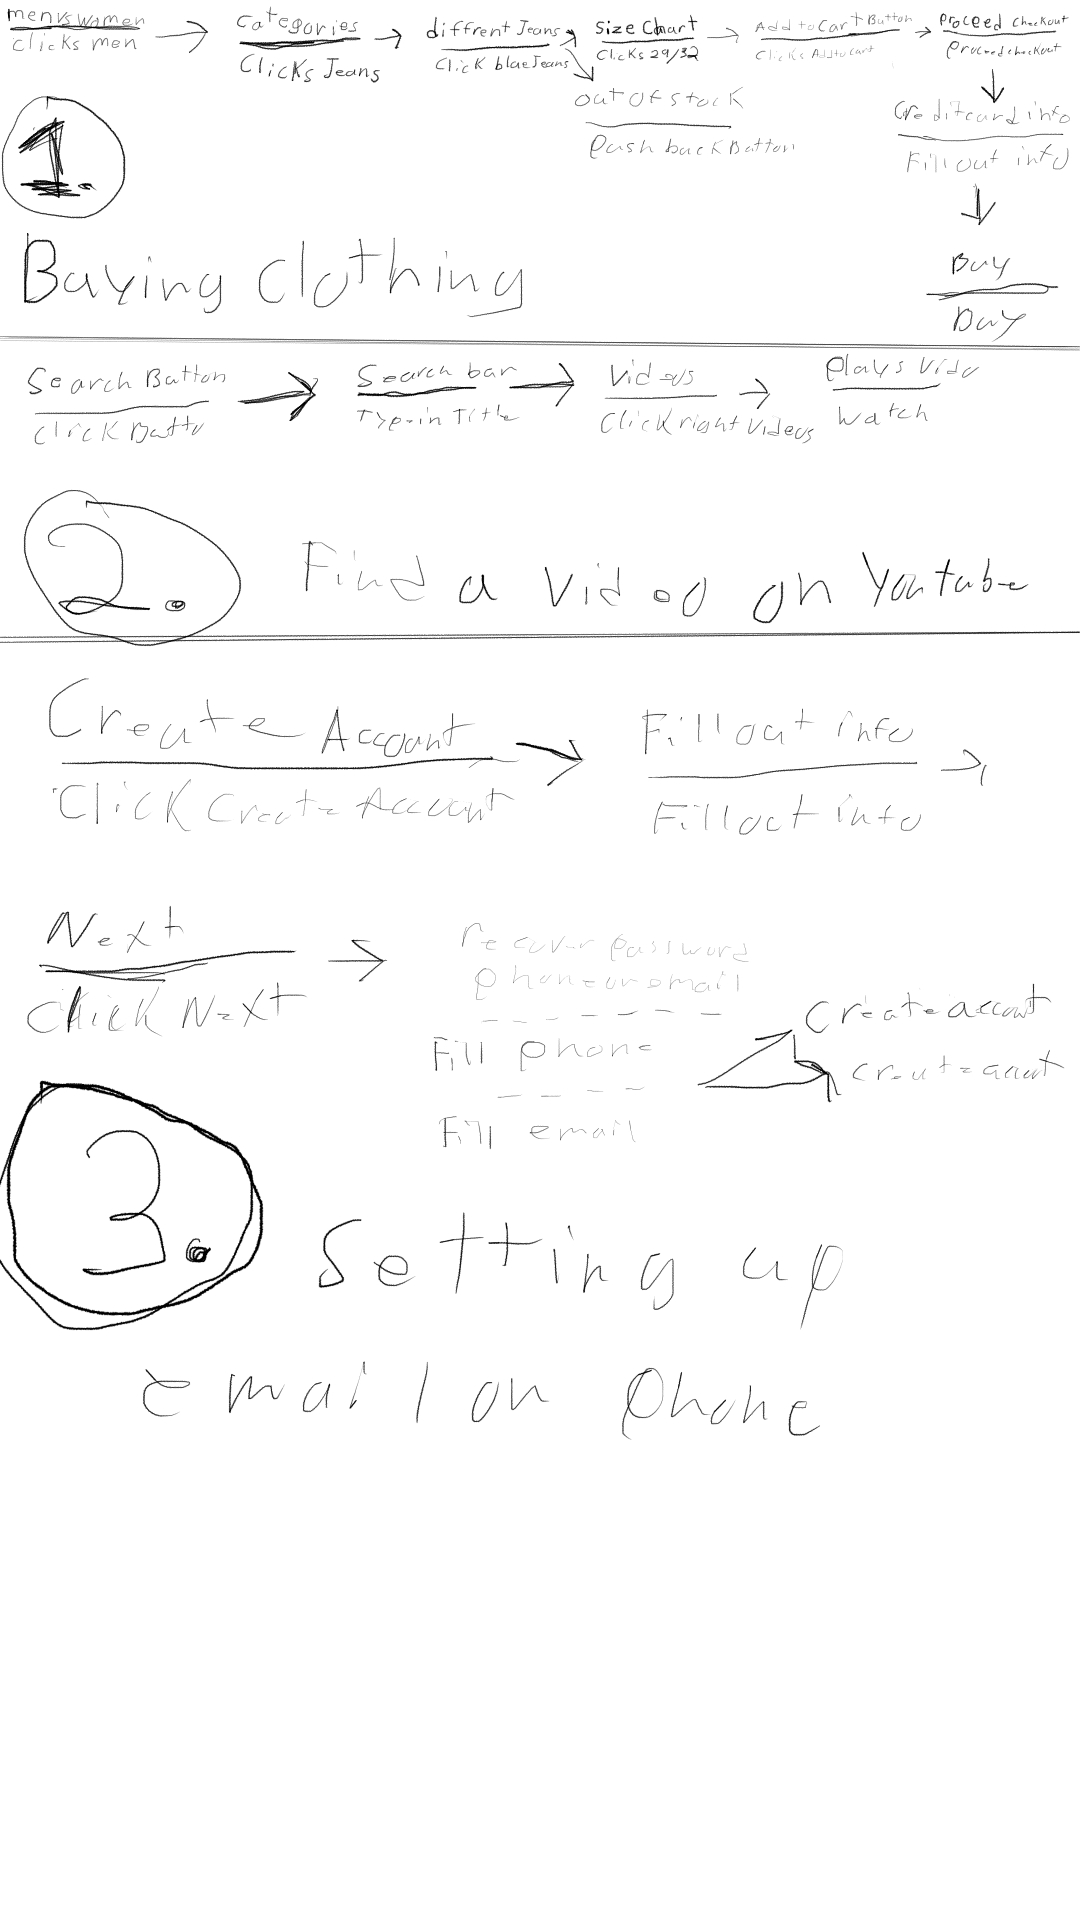 men vs women
clicks men
categories
Clicks Jeans
diffrent Jeans
Click blue Jeans
Size Chart
Clicks 29/32
Add to Cart Button
Clicks Add to cart
Proceed checkout
Proceed checkout
out of stock
Push back Button
Creditcard info
Fill out info
Buy
Buy
1.
Buying Clothing
Search Button
Click Butto
Search bar
Type in Title
Videos
Click right Videos
Plays Vido
Watch
2.
Find a Video on Youtube
Create Account
Click Create Account
Fill out info
Fill out info
Next
Click Next
recover password
phone or email
Fill phone
Fill email
Create account
Create account
3.
Setting up
email on phone